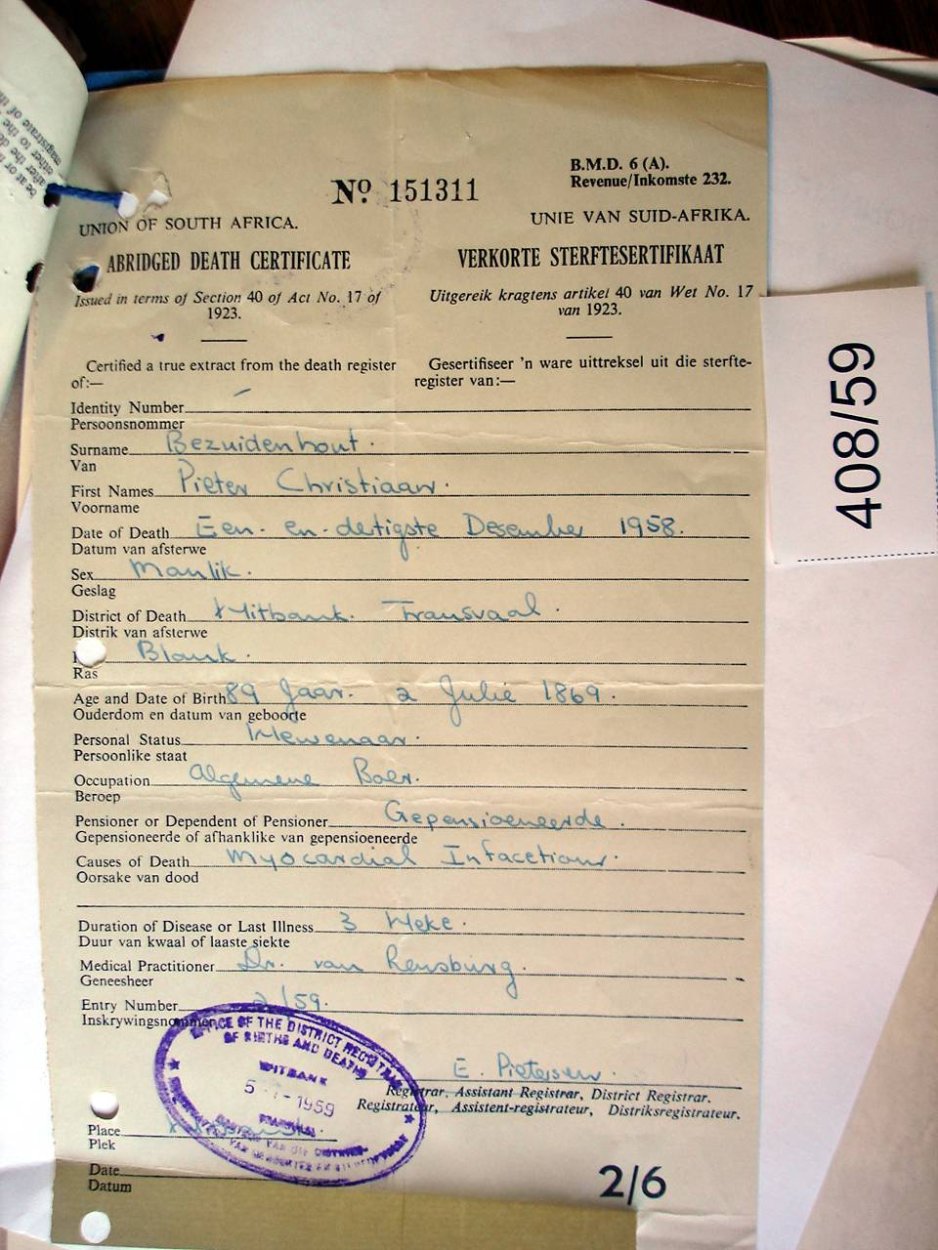 be at or
either to the
after the de
magistrate of the
B.M.D. 6 (A).
Revenue/Inkomste 232.
Nº 151311
UNION OF SOUTH AFRICA.
UNIE VAN SUID-AFRIKA.
ABRIDGED DEATH CERTIFICATE
VERKORTE STERFTESERTIFIKAAT
Issued in terms of Section 40 of Act No. 17 of
1923.
Uitgereik kragtens artikel 40 van Wet No. 17
van 1923.
Certified a true extract from the death register
of:—
Gesertifiseer 'n ware uittreksel uit die sterfte-
register van:—
Identity Number —
Persoonsnommer
Surname Bezuidenhout.
Van
First Names Pieter Christiaan.
Voorname
Date of Death Een-en-dertigste Desember 1958.
Datum van afsterwe
Sex Manlik.
Geslag
District of Death Witbank. Transvaal.
Distrik van afsterwe
Blank.
Ras
Age and Date of Birth 89 Jaar. 2 Julie 1869.
Ouderdom en datum van geboorte
Personal Status Wewenaar.
Persoonlike staat
Occupation Algemene Boer.
Beroep
Pensioner or Dependent of Pensioner Gepensioeneerde.
Gepensioneerde of afhanklike van gepensioeneerde
Causes of Death Myocardial Infacetion.
Oorsake van dood
Duration of Disease or Last Illness 3 Weke.
Duur van kwaal of laaste siekte
Medical Practitioner Dr. van Rensburg.
Geneesheer
Entry Number 2/59.
Inskrywingsnommer
E. Pietersen.
Registrar, Assistant Registrar, District Registrar.
Registrateur, Assistent-registrateur, Distriksregistrateur.
OFFICE OF THE DISTRICT REGISTRAR
OF BIRTHS AND DEATHS
WITBANK
5 -1-1959
Place
Plek
Date
Datum
2/6
408/59